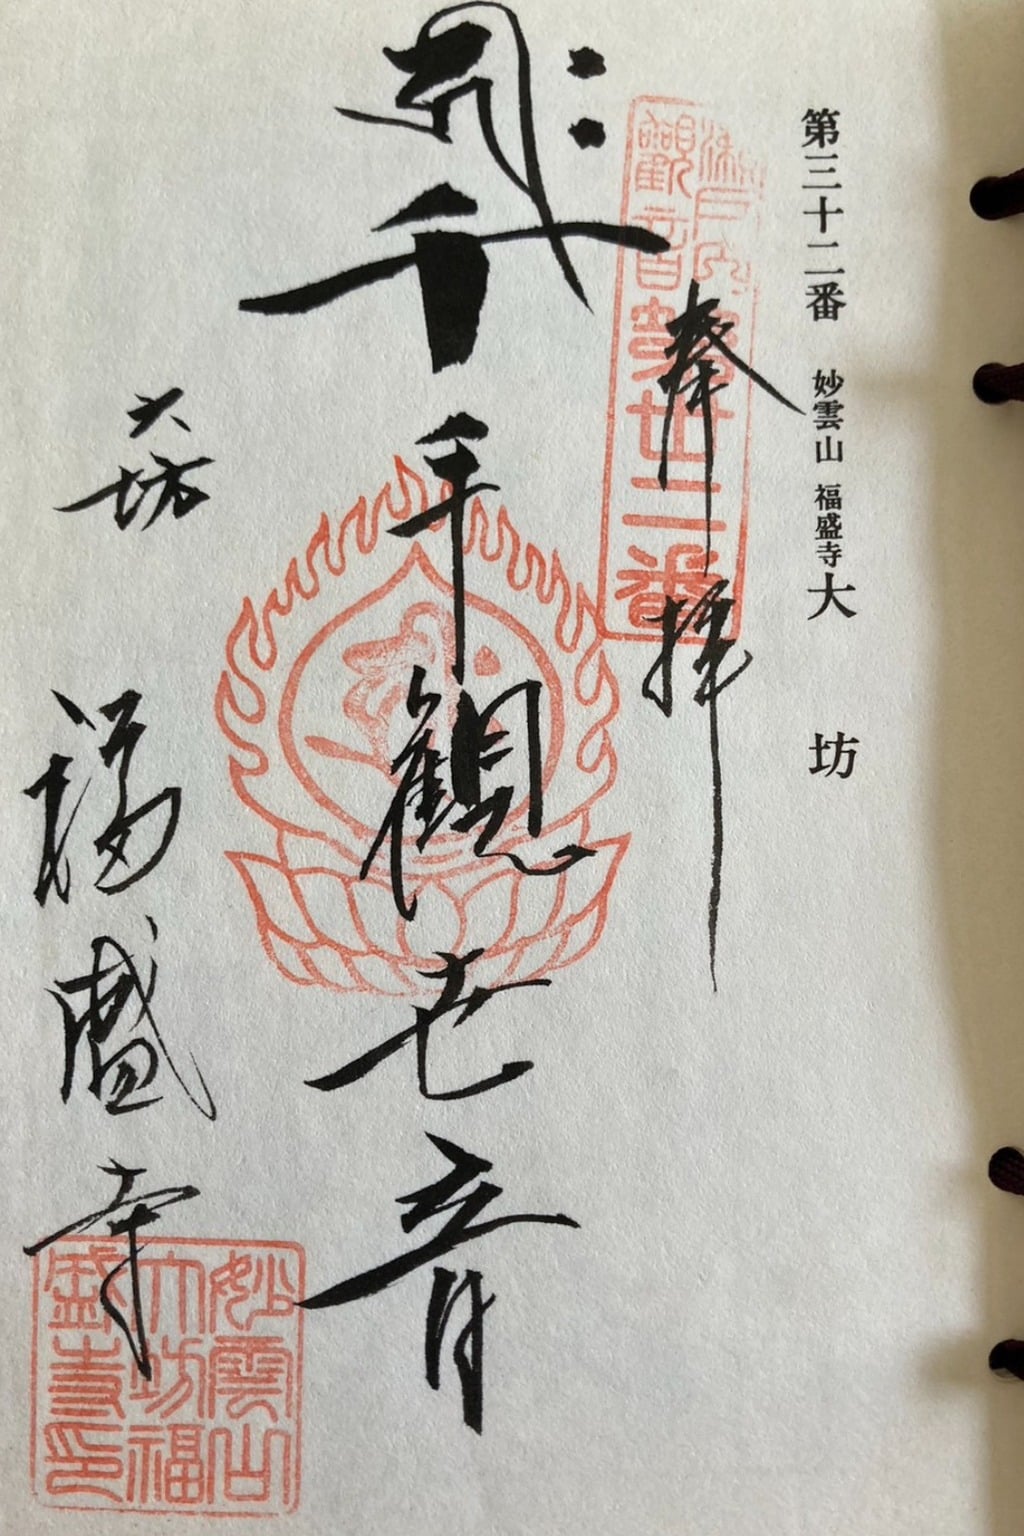 第三十二番 妙雲山 福盛寺 大坊
奉拝
瀬戸内観音第卅二番
千手観世音
大坊
福盛寺
妙雲山大坊福盛寺印